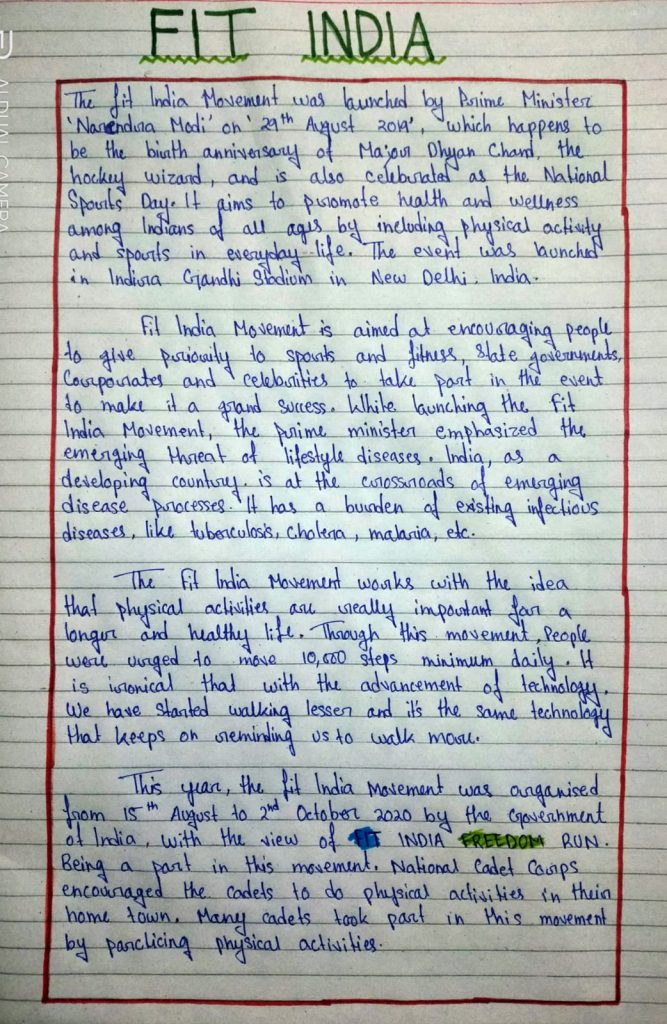 FIT INDIA
The fit India Movement was launched by Prime Minister
'Narendra Modi' on '29th August 2019', which happens to
be the birth anniversary of Major Dhyan Chand, the
hockey wizard, and is also celebrated as the National
Sports Day. It aims to promote health and wellness
among Indians of all ages by including physical activity
and sports in everyday life. The event was launched
in Indira Gandhi Stadium in New Delhi, India.
Fit India Movement is aimed at encouraging people
to give priority to sports and fitness, State governments,
Corporates and celebrities to take part in the event
to make it a grand success. While launching the fit
India Movement, the prime minister emphasized the
emerging threat of lifestyle diseases. India, as a
developing country. is at the crossroads of emerging
disease processes. It has a burden of existing infectious
diseases, like tuberculosis, cholera, malaria, etc.
The Fit India Movement works with the idea
that physical activities are really important for a
longer and healthy life. Through this movement, People
were urged to move 10,000 steps minimum daily. It
is ironical that with the advancement of technology.
We have started walking lesser and it's the same technology
that keeps on reminding us to walk more.
This year, the fit India Movement was organised
from 15th August to 2nd October 2020 by the Government
of India, with the view of FIT INDIA FREEDOM RUN.
Being a part in this movement. National Cadet Corps
encouraged the cadets to do physical activities in their
home town. Many cadets took part in this movement
by parcticing physical activities.
AI DUAL CAMERA